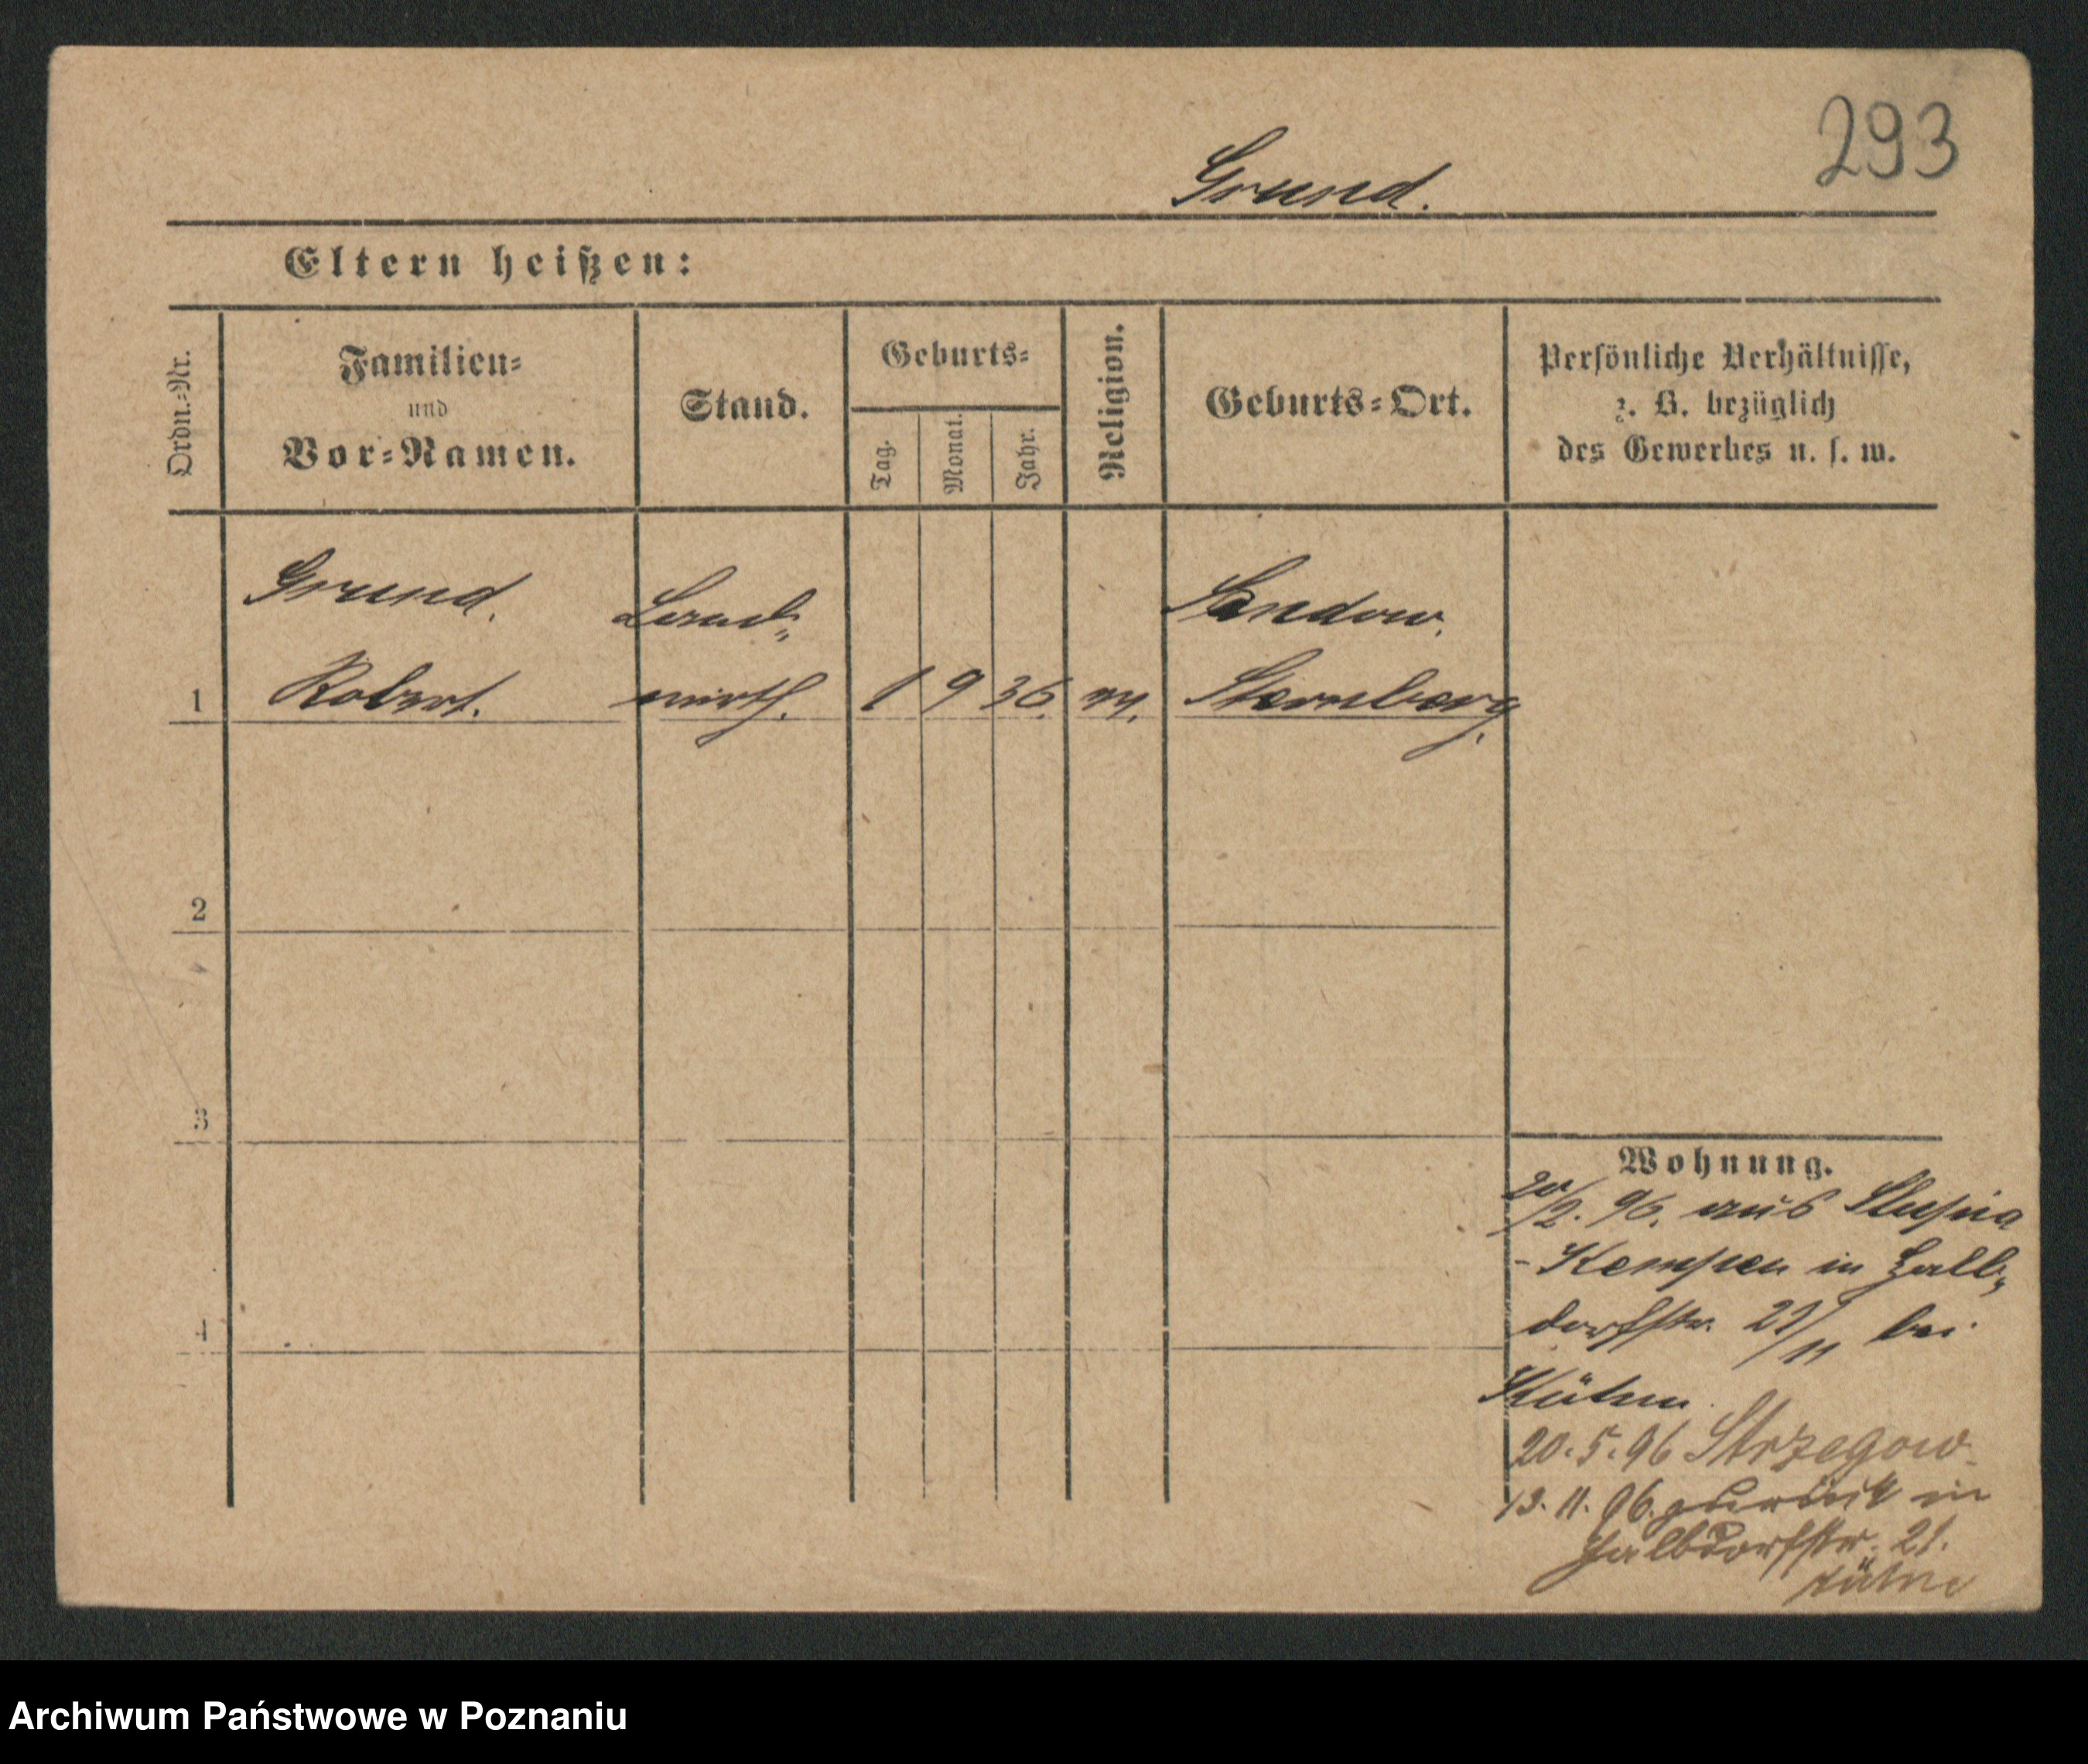 293
Grund.
Eltern heißen:
Ordn.-Nr.
Familien-
und
Vor-Namen.
Stand.
Geburts-
Tag.
Monat.
Jahr.
Religion.
Geburts-Ort.
Persönliche Verhältnisse,
z. B. bezüglich
des Gewerbes u. s. w.
Grund. Land- Sandow.
1 Robert. wirth. 1 9 36. Sternberg.
2
3
4
Wohnung.
20/2. 96. aus Slupia
-Kempen in Halb-
dorfstr. 21/11 bei
20.5.96 Strzegow
13.11.96. zurück in
Halbdorfstr. 21.
Kühne
Archiwum Państwowe w Poznaniu